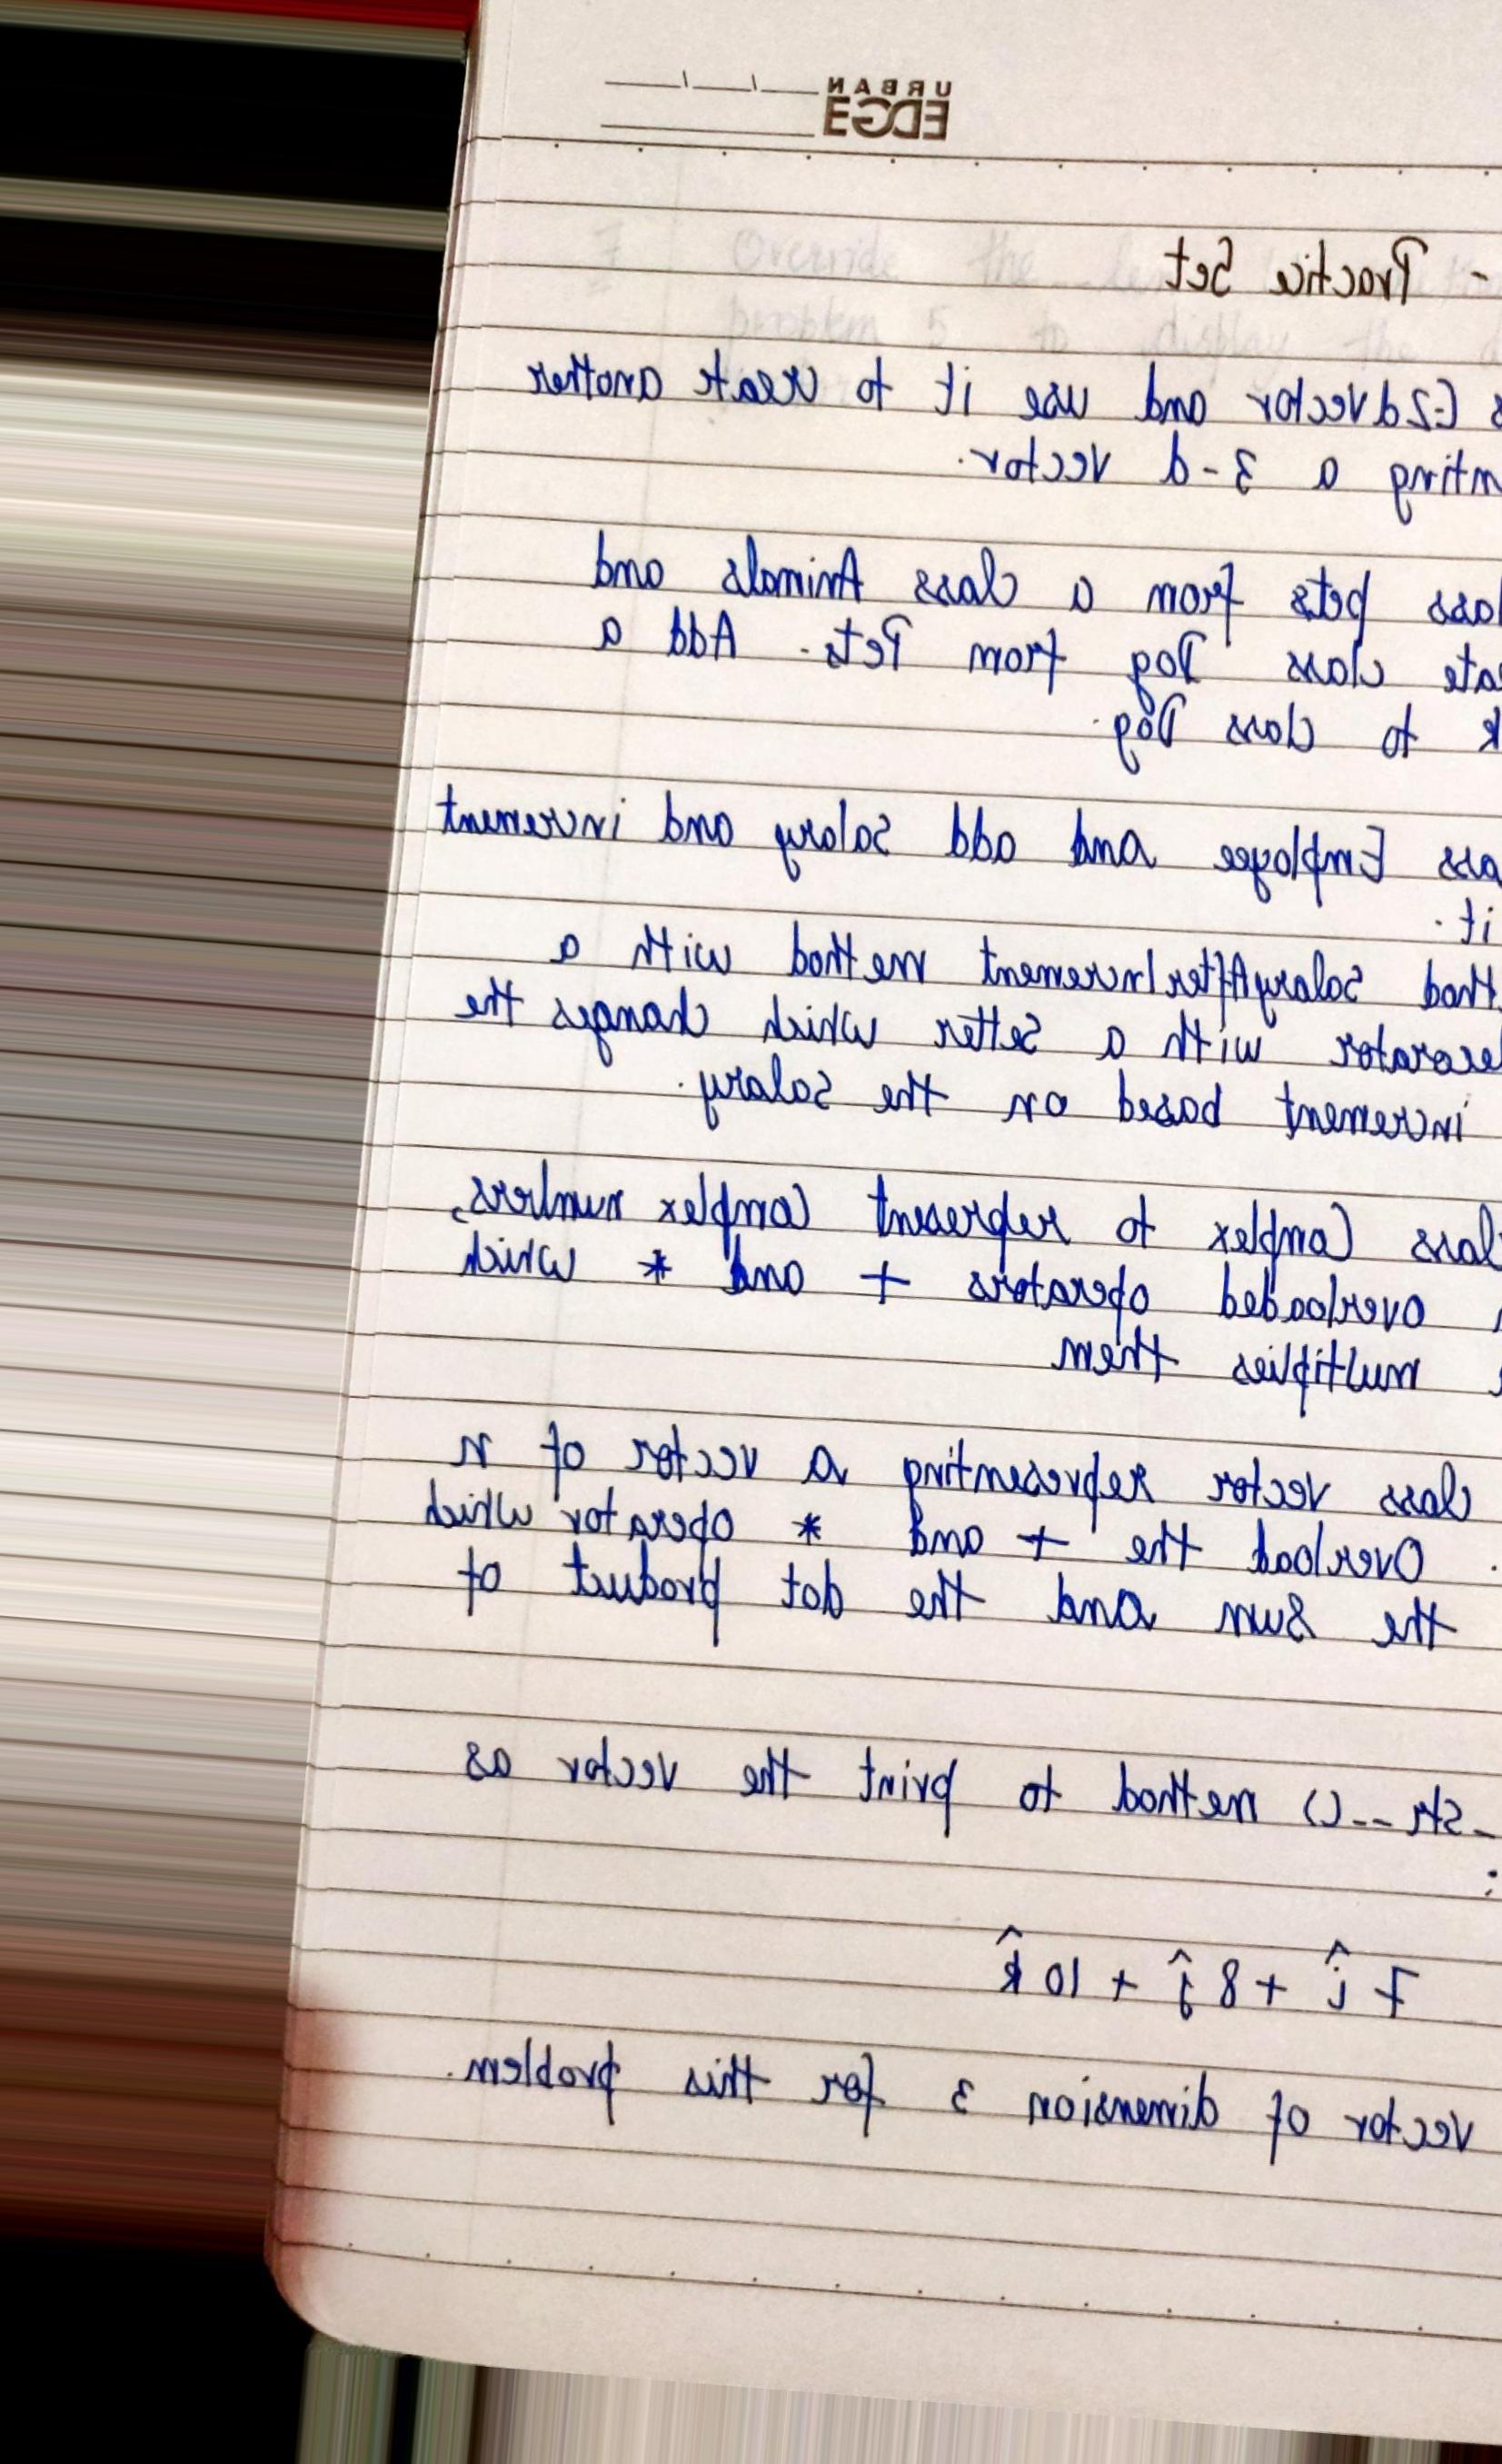 URBAN
EDGE
- Practice Set
s C-2d vector and use it to create another
nting a 3-d vector.
lass pets from a class Animals and
ate class Dog from Pets. Add a
k to class Dog.
ass Employee and add salary and increment
it.
thod SalaryAfterIncrement method with a
ecorator with a setter which changes the
increment based on the salary.
class Complex to represent Complex numbers,
overloaded operators + and * which
multiplies them
class vector representing a vector of n
. Overload the + and * operator which
the sum and the dot product of
_str__() method to print the vector as
:
7î + 8ĵ + 10k̂
vector of dimension 3 for this problem.
Override the
problem 5 to display the